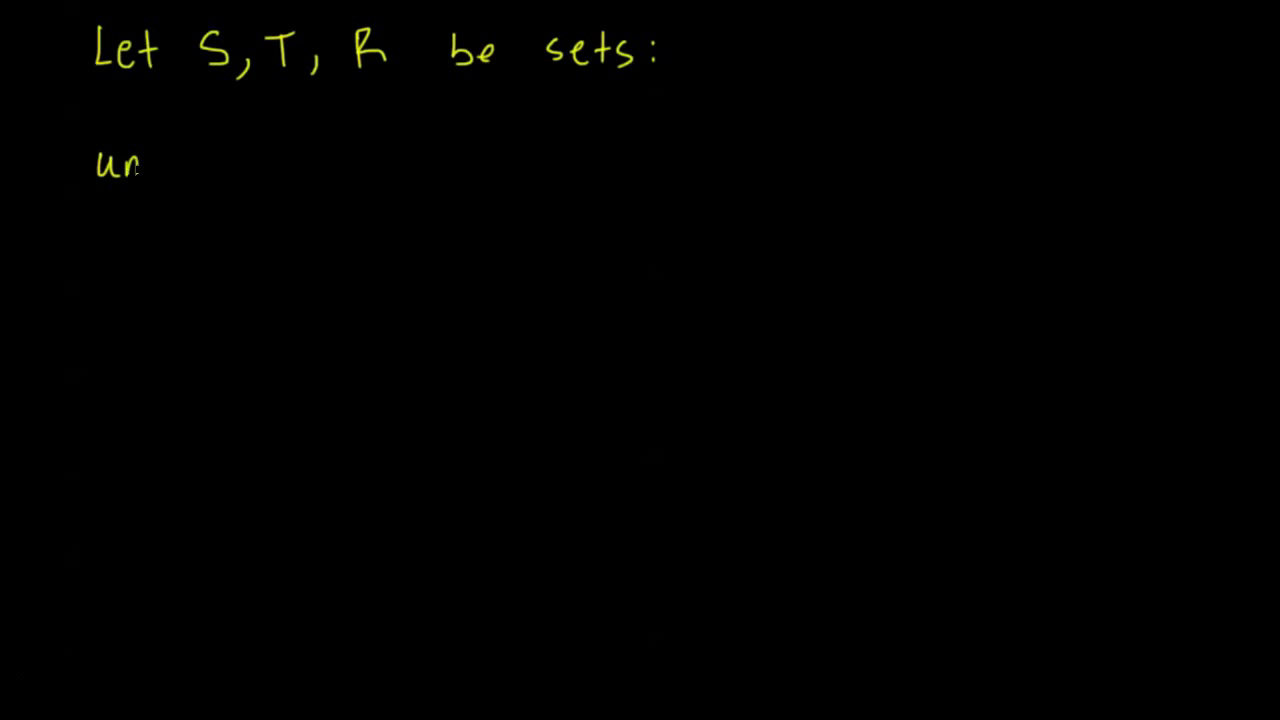 Let S, T, R be sets:
un